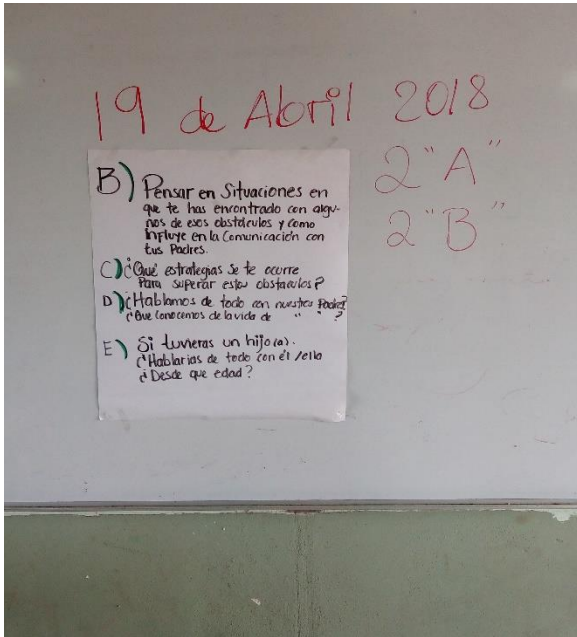 19 de Abril 2018
2 "A"
2 "B"
B) Pensar en Situaciones en
que te has encontrado con algu-
nos de esos obstáculos y como
influye en la Comunicación con
tus Padres.
C) ¿Qué estrategias se te ocurre
Para superar estos obstaculos?
D) ¿Hablamos de todo con nuestros Padres?
¿Que Conocemos de la vida de " " ?
E) Si tuvieras un hijo(a).
¿Hablarias de todo con él/ella
¿Desde que edad?